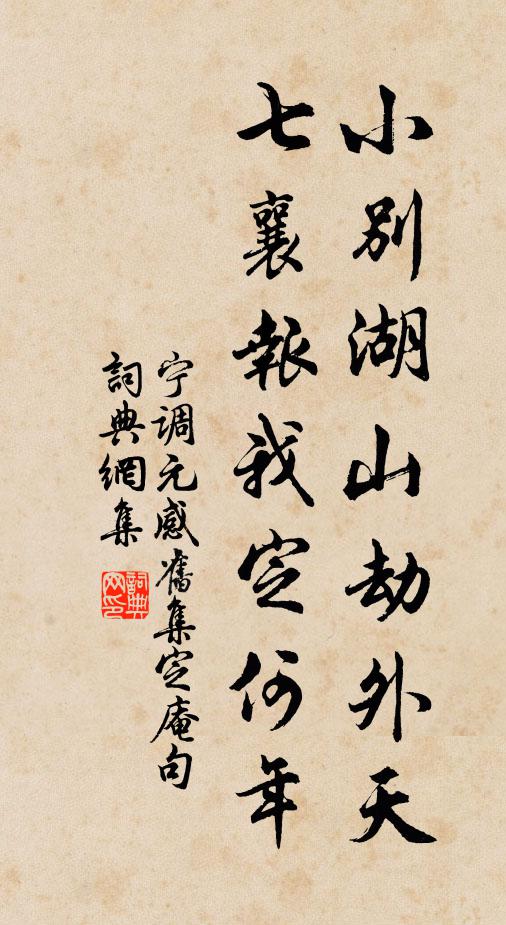 小别湖山劫外天
七襄報我定何年
宁调元感舊集定庵句
詞典網集
詞典網印